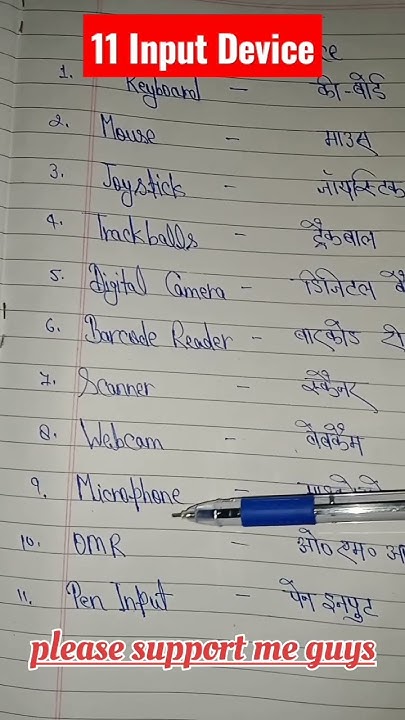 11 Input Device
1. Keyboard - की-बोर्ड
2. Mouse - माउस
3. Joystick - जॉयस्टिक
4. Trackballs - ट्रैकबाल
5. Digital Camera - डिजिटल
6. Barcode Reader - बारकोड
7. Scanner - स्कैनर
8. Webcam - वेबकैम
9. Microphone -
10. OMR - ओ० एम०
11. Pen Input - पेन इनपुट
please support me guys